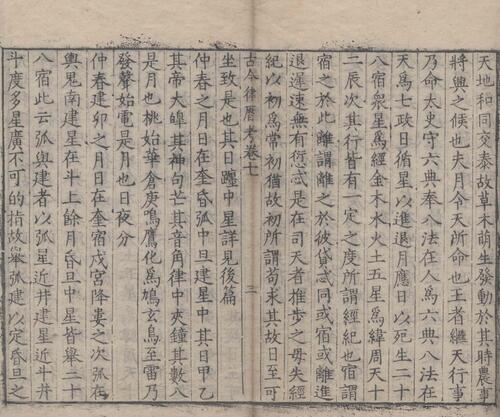 天地和同交泰故草木萌生發動於其時農事
將興之候也夫月令天所命也王者繼天行事
乃命太史守六典奉八法在人爲六典八法在
天爲七政日循星以進退月應日以死生二十
八宿衆星爲經金木水火土五星爲緯周天十
二辰次其行皆有一定之度所謂經紀也宿謂
宿之於此離謂離之於彼貸忒同或宿或離進
退遲速無有愆忒是在司天者推步之毋失經
紀以初爲常初猶故初所謂苟求其故日至可
古今律曆考卷十
坐致是也其日躔中星詳見後篇
仲春之月日在奎昏弧中旦建星中其日甲乙
其帝大皞其神句芒其音角律中夾鐘其數八
是月也桃始華倉庚鳴鷹化爲鳩玄鳥至雷乃
發聲始電是月也日夜分
仲春建卯之月日在奎宿戌宮降婁之次弧在
輿鬼南建星在斗上餘月昏旦中星皆舉二十
八宿此云弧與建者以弧星近井建星近斗井
斗度多星廣不可的指故舉弧建以定昏旦之